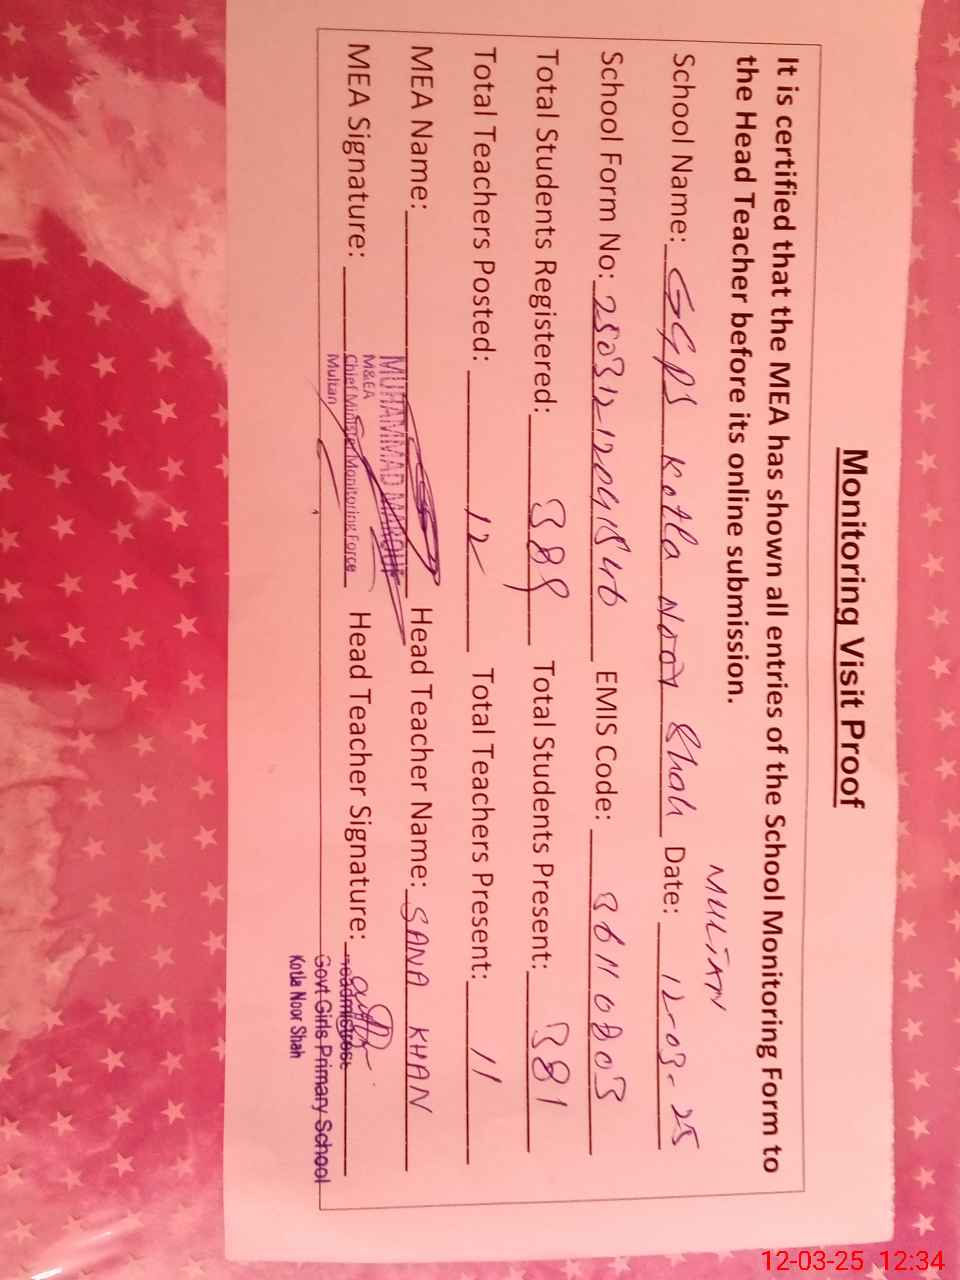 Monitoring Visit Proof
It is certified that the MEA has shown all entries of the School Monitoring Form to
the Head Teacher before its online submission.
MULTAN
School Name: GGPS Kotla Noor Shah Date: 12-03-25
School Form No: EMIS Code: 36110803
Total Students Registered: 389 Total Students Present: 381
Total Teachers Posted: 12 Total Teachers Present: 11
MEA Name: MUHAMMAD Head Teacher Name: SANA KHAN
M&EA
MEA Signature: Chief Minister Monitoring Force Head Teacher Signature: Headmistress
Multan
Govt Girls Primary School
Kotla Noor Shah
12-03-25 12:34